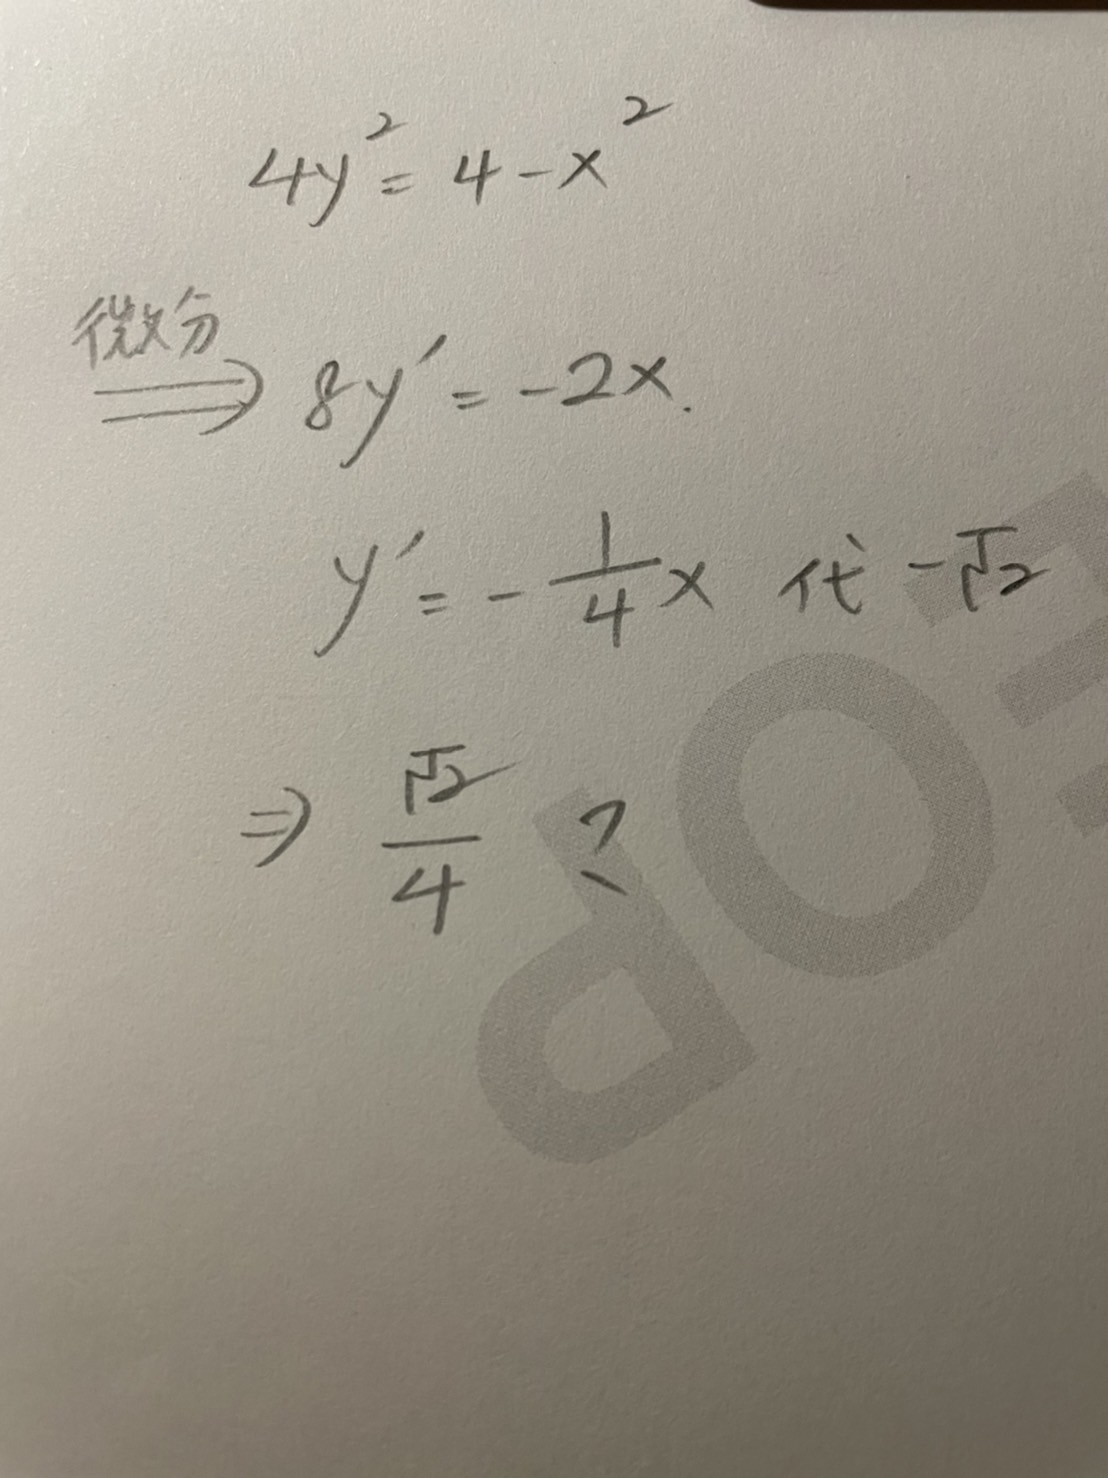 4y² = 4 - x²
微分
⇒ 8y' = -2x.
y' = -1/4 x 代 -√2
⇒ √2/4 ?